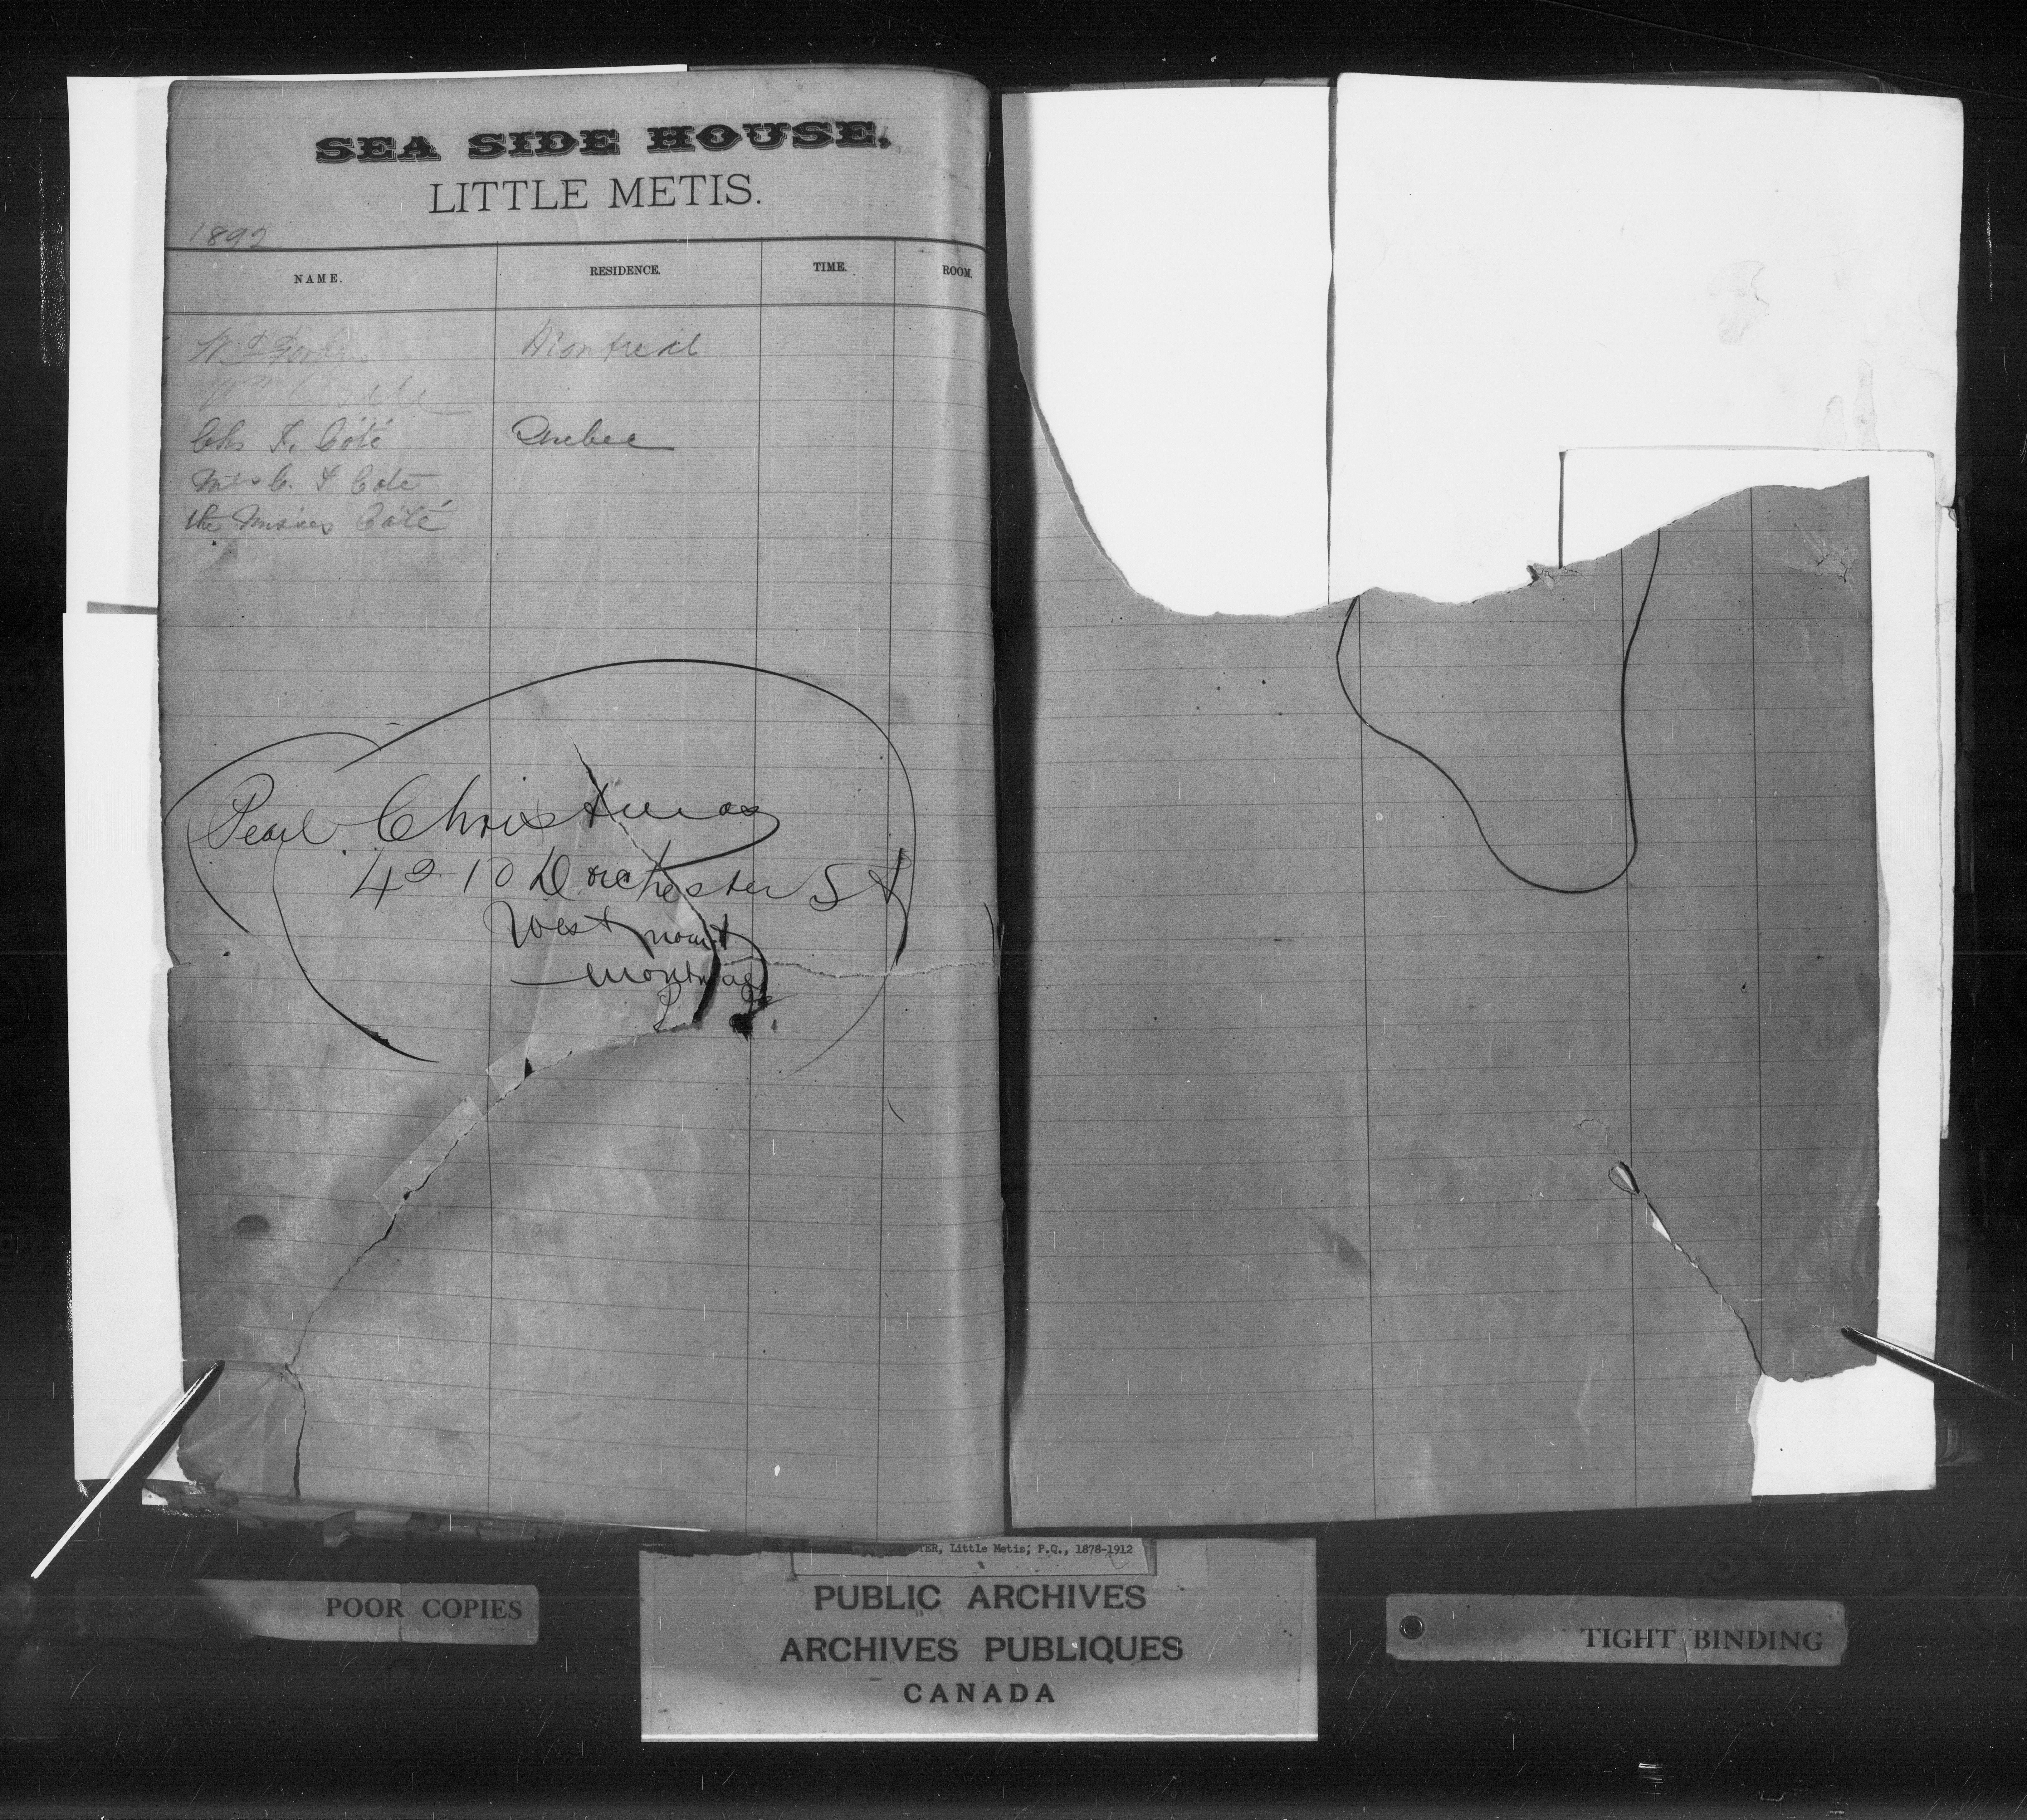 SEA SIDE HOUSE,
LITTLE METIS.
1892
NAME. RESIDENCE. TIME. ROOM.
Montreal
Wm
Chs F. Côté Quebec
Mrs C. F Coté
the Misses Côté
Pearl Christmas
4210 Dorchester St
West mount
Montreal
TER, Little Metis, P.Q., 1878-1912
POOR COPIES
PUBLIC ARCHIVES
ARCHIVES PUBLIQUES
CANADA
TIGHT BINDING